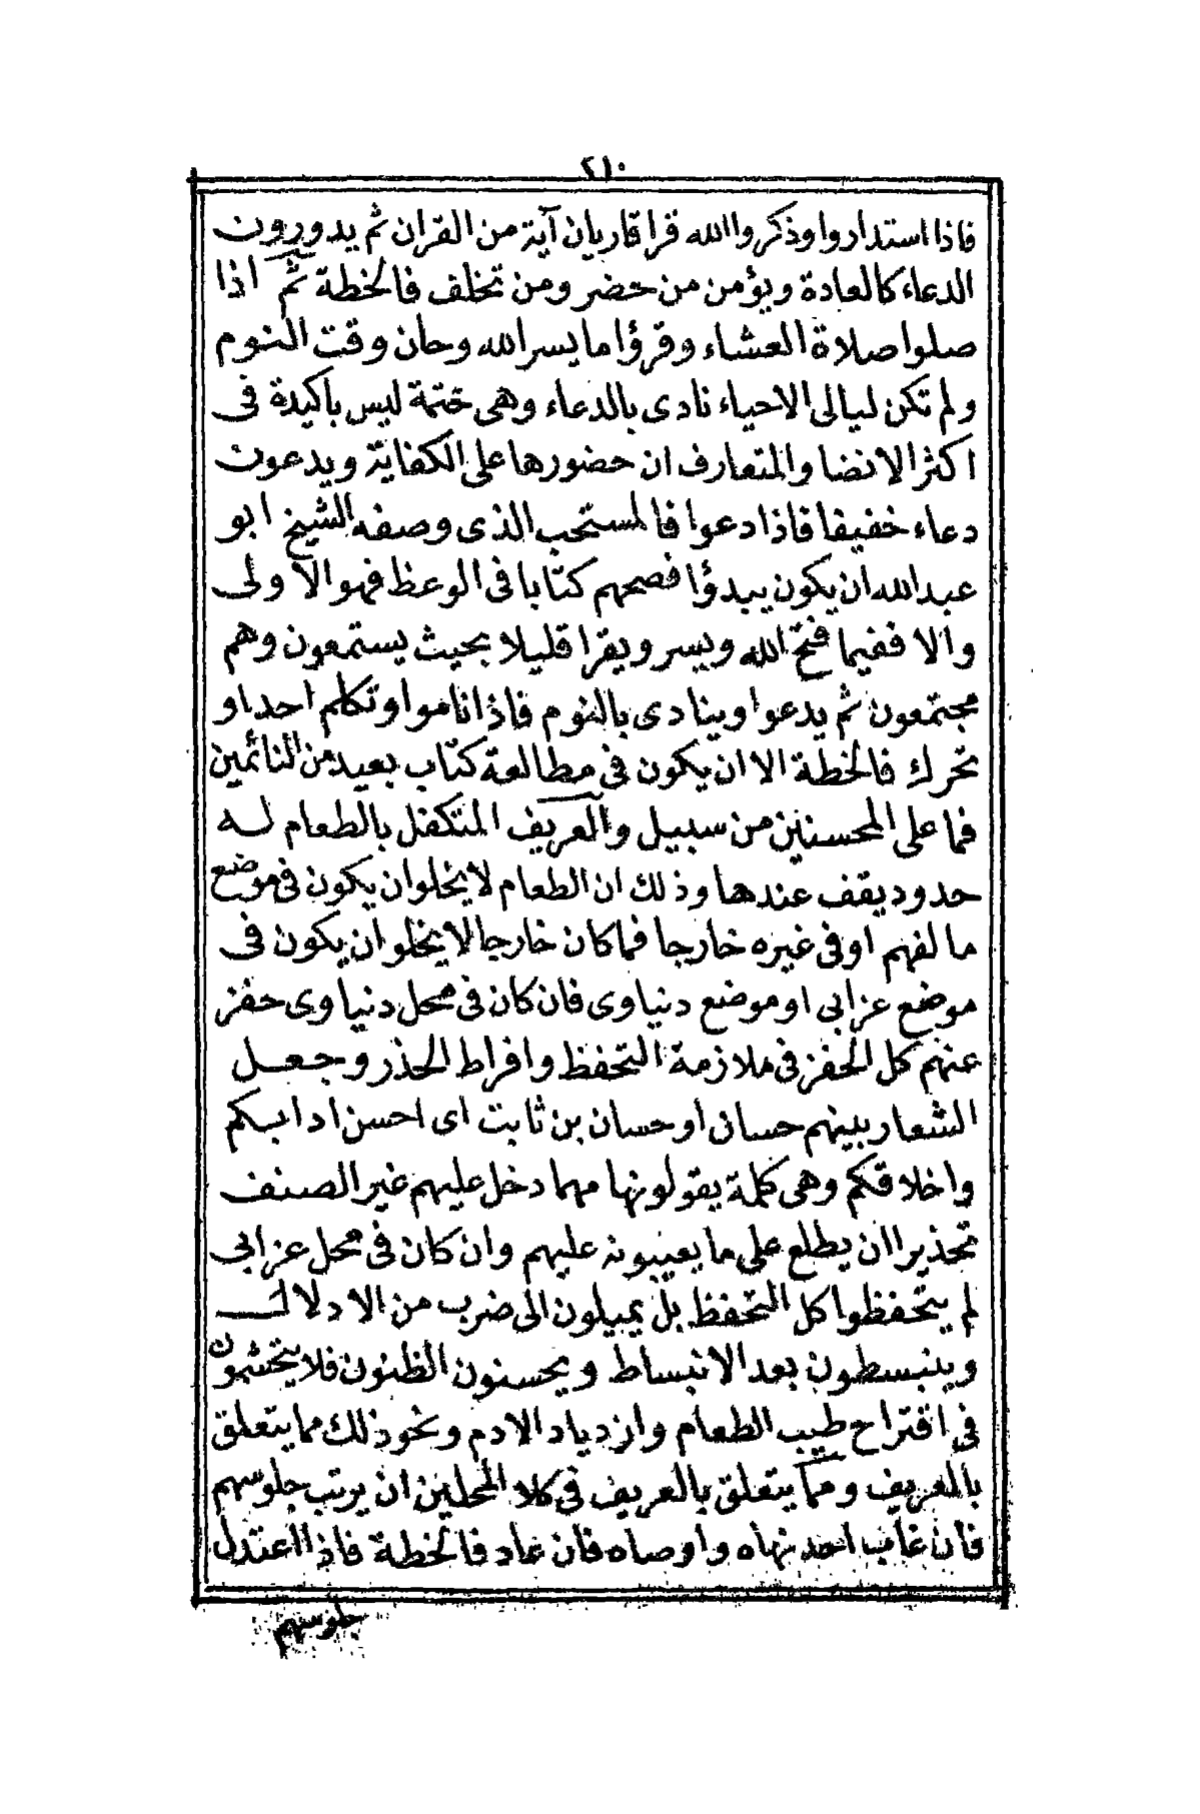 ٢١٠
فاذا استداروا وذكروا الله قرا قاريان آية من القران ثم يدورون
الدعاء كالعادة ويؤمن من حضر ومن تخلف فالخطة ثم اذا
صلوا صلاة العشاء وقرؤا ما يسر الله وحان وقت النوم
ولم تكن ليالى الاحياء نادى بالدعاء وهى ختمة ليس باكيدة فى
اكثر الانضا والمتعارف ان حضورها على الكفاية ويدعون
دعاء خفيفا فاذا دعوا فالمستحب الذى وصفه الشيخ ابو
عبد الله ان يكون يبدؤا فصحهم كتابا فى الوعظ فهو الاولى
والا ففيما فتح الله ويسر ويقرا قليلا بحيث يستمعون وهم
مجتمعون ثم يدعوا وينادى بالنوم فاذا ناموا وتكلم احد او
تحرك فالخطة الا ان يكون فى مطالعة كتاب بعيد من النائمين
فما على المحسنين من سبيل والعريف المتكفل بالطعام له
حدود يقف عندها وذلك ان الطعام لا يخلوا ان يكون فى موضع
مالفهم او فى غيره خارجا فما كان خارجا لا يخلوا ان يكون فى
موضع عزابى او موضع دنياوى فان كان فى محل دنياوى حفز
عنهم كل الحفز فى ملازمة التحفظ وافراط الحذر وجعل
الشعار بينهم حسان او حسان بن ثابت اى احسن ادابكم
واخلاقكم وهى كلمة يقولونها مهما دخل عليهم غير الصنف
تحذيرا ان يطلع على ما يعيبونه عليهم وان كان فى محل عزابى
لم يتحفظوا كل التحفظ بل يميلون الى ضرب من الادلال
وينبسطون بعد الانبساط ويحسنون الظنون فلا يتحشمون
فى اقتراح طيب الطعام وازدياد الادم ونحو ذلك مما يتعلق
بالعريف ومما يتعلق بالعريف فى كلا المحلين ان يرتب جلوسهم
فان غاب احد نهاه واوصاه فان عاد فالخطة فاذا اعتدل
جلوسهم